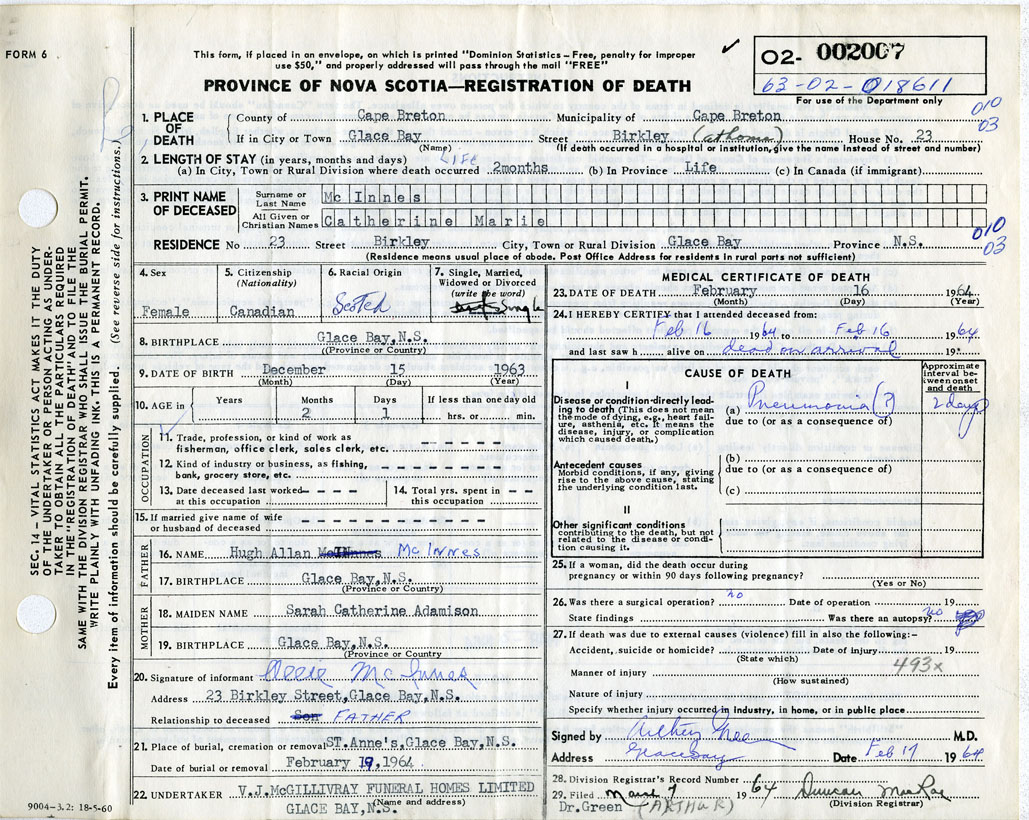 FORM 6
This form, if placed in an envelope, on which is printed "Dominion Statistics – Free, penalty for improper
use $50," and properly addressed will pass through the mail "FREE"
✓
02- 002007
63-02-018611
For use of the Department only
PROVINCE OF NOVA SCOTIA—REGISTRATION OF DEATH
010
03
1. PLACE OF DEATH
County of Cape Breton Municipality of Cape Breton
If in City or Town Glace Bay Street Birkley (at home) House No. 23
(Name) (If death occurred in a hospital or institution, give the name instead of street and number)
2. LENGTH OF STAY (in years, months and days) LIFE
(a) In City, Town or Rural Division where death occurred 2months (b) In Province Life (c) In Canada (if immigrant)
3. PRINT NAME OF DECEASED
Surname or Last Name Mc Innes
All Given or Christian Names Catherine Marie
010
03
RESIDENCE No 23 Street Birkley City, Town or Rural Division Glace Bay Province N.S.
(Residence means usual place of abode. Post Office Address for residents in rural parts not sufficient)
4. Sex
Female
5. Citizenship
(Nationality)
Canadian
6. Racial Origin
Scoted
7. Single, Married,
Widowed or Divorced
(write the word)
Single
8. BIRTHPLACE Glace Bay,N.S.
(Province or Country)
9. DATE OF BIRTH December 15 1963
(Month) (Day) (Year)
10. AGE in
Years Months Days If less than one day old
2 1 hrs. or min.
OCCUPATION
11. Trade, profession, or kind of work as
fisherman, office clerk, sales clerk, etc. - - - - -
12. Kind of industry or business, as fishing,
bank, grocery store, etc. - - - - - - -
13. Date deceased last worked
at this occupation - - - -
14. Total yrs. spent in
this occupation - -
15. If married give name of wife
or husband of deceased - - - - - - - -
FATHER
16. NAME Hugh Allan McINnes McInnes
17. BIRTHPLACE Glace Bay,N.S.
(Province or Country)
MOTHER
18. MAIDEN NAME Sarah Catherine Adamison
19. BIRTHPLACE Glace Bay,N.S.
(Province or Country
20. Signature of informant McInnes
Address 23 Birkley Street,Glace Bay,N.S.
Relationship to deceased Son FATHER
21. Place of burial, cremation or removal ST.Anne's,Glace Bay,N.S.
Date of burial or removal February 19,1964
22. UNDERTAKER V.J.McGILLIVRAY FUNERAL HOMES LIMITED
GLACE BAY,N.S.
(Name and address)
MEDICAL CERTIFICATE OF DEATH
23. DATE OF DEATH February 16 1964
(Month) (Day) (Year)
24. I HEREBY CERTIFY that I attended deceased from:
Feb 16 1964 to Feb 16 1964
and last saw h alive on dead on arrival 19
CAUSE OF DEATH
Approximate
interval be-
tween onset
and death
I
Disease or condition directly lead-
ing to death (This does not mean
the mode of dying, e.g., heart fail-
ure, asthenia, etc. It means the
disease, injury, or complication
which caused death.)
(a) Pneumonia (?) 2 days
due to (or as a consequence of)
Antecedent causes
Morbid conditions, if any, giving
rise to the above cause, stating
the underlying condition last.
(b)
due to (or as a consequence of)
(c)
II
Other significant conditions
contributing to the death, but not
related to the disease or condi-
tion causing it.
25. If a woman, did the death occur during
pregnancy or within 90 days following pregnancy?
(Yes or No)
26. Was there a surgical operation? no Date of operation 19
State findings Was there an autopsy? no
27. If death was due to external causes (violence) fill in also the following:–
Accident, suicide or homicide? Date of injury 19
(State which)
493x
Manner of injury
(How sustained)
Nature of injury
Specify whether injury occurred in industry, in home, or in public place
Signed by M.D.
Address Glace Bay Date Feb 17 1964
28. Division Registrar's Record Number
29. Filed March 7 1964 Duncan MacRae
Dr.Green (ARTHUR) (Division Registrar)
SEC. 14 – VITAL STATISTICS ACT MAKES IT THE DUTY
OF THE UNDERTAKER OR PERSON ACTING AS UNDER-
TAKER TO OBTAIN ALL THE PARTICULARS REQUIRED
IN THE "REGISTRATION OF DEATH" AND TO FILE THE
SAME WITH THE DIVISION REGISTRAR WHO SHALL ISSUE THE BURIAL PERMIT.
WRITE PLAINLY WITH UNFADING INK. THIS IS A PERMANENT RECORD.
Every item of information should be carefully supplied. (See reverse side for instructions.)
9004-3.2: 18-5-60